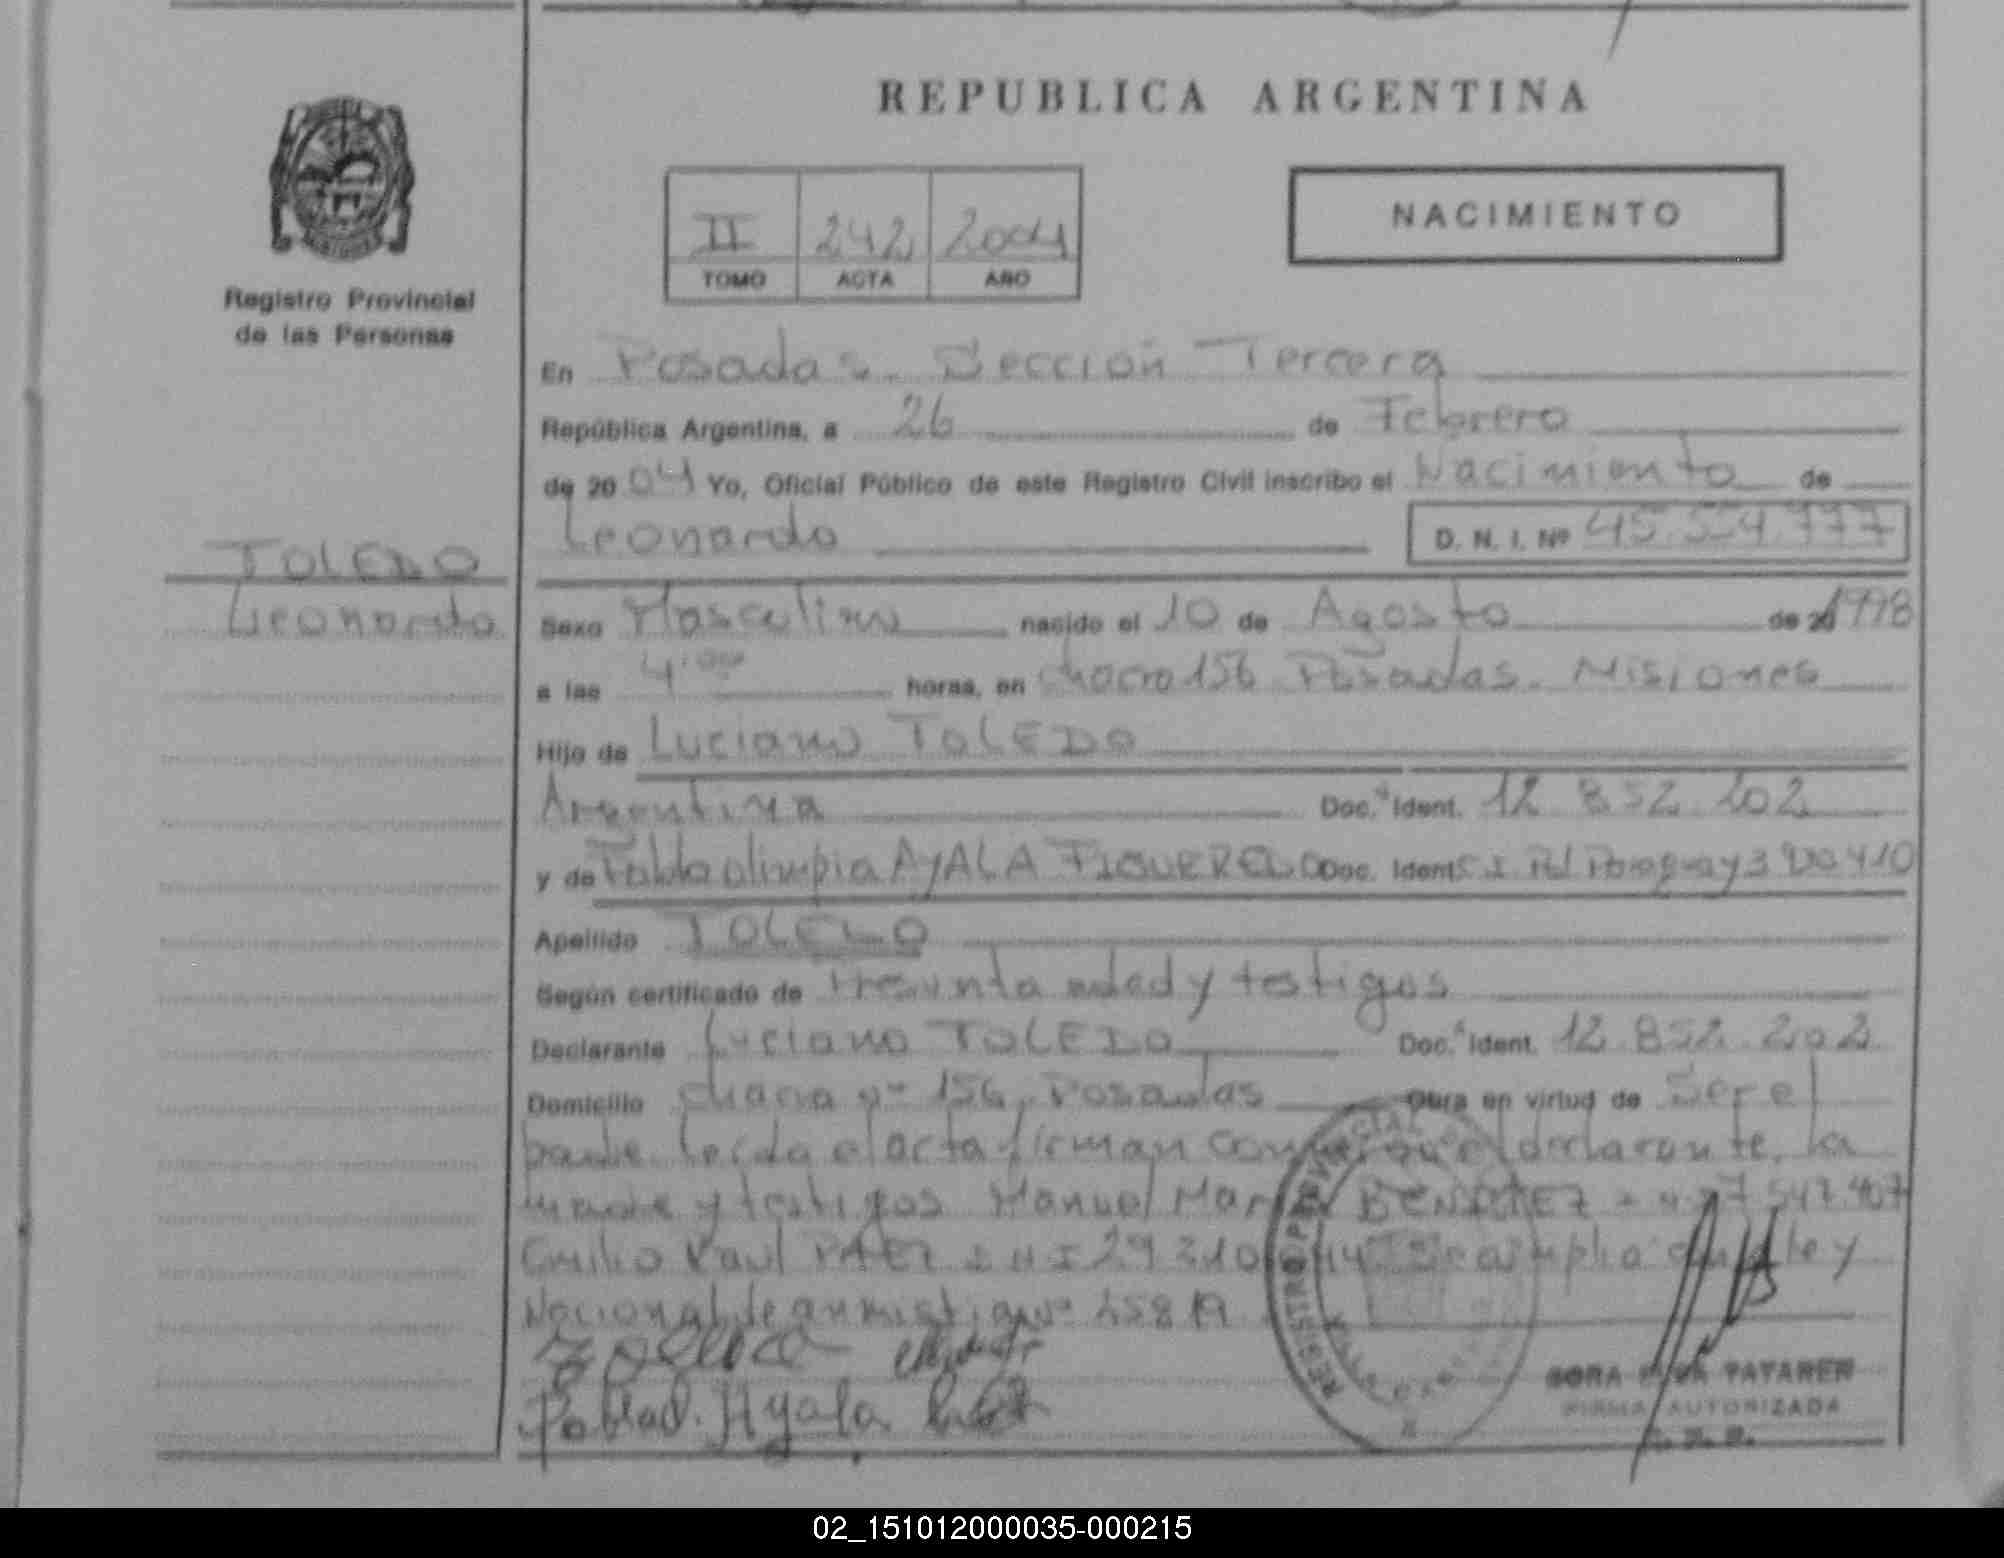 REPUBLICA ARGENTINA
NACIMIENTO
II 242 2004
TOMO ACTA AÑO
Registro Provincial
de las Personas
En Posadas. Sección Tercera
República Argentina, a 26 de Febrero
de 2004 Yo, Oficial Público de este Registro Civil inscribo el Nacimiento de
Leonardo D. N. I. Nº 45.554.777
TOLEDO
Leonardo
Sexo Masculino nacido el 10 de Agosto de 1998
a las 4:00 horas, en chacra 156 Posadas. Misiones
Hijo de Luciano TOLEDO
Argentina Doc. Ident. 12 852 202
y de Olimpia AYALA Doc. Ident. C.I. Paraguay
Apellido TOLEDO
Según certificado de Presunta edad y testigos
Declarante Luciano TOLEDO Doc. Ident. 12.852.202
Domicilio chacra nº 156, Posadas Obra en virtud de Ser el
padre leída el acta firman el declarante, la
madre y testigos Manuel BENITEZ 7.547.407
PAEZ 29 310 ley
Nacional de amnistia nº
Ayala
REGISTRO PROVINCIAL
FIRMA AUTORIZADA
02_151012000035-000215